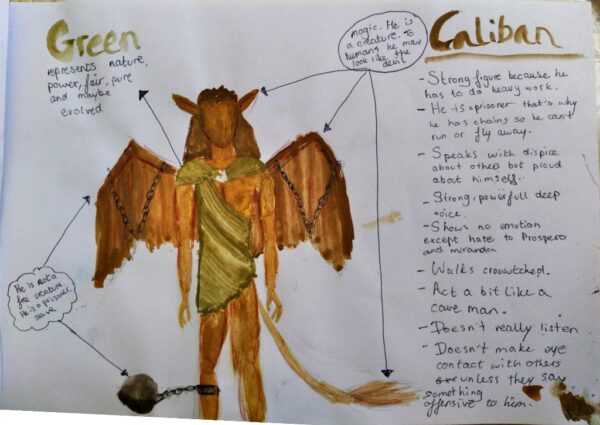 Green
represents nature,
power, fair, pure
and maybe
evolved
magic. He is
a creature. To
humans he may
look like the
devil
He is not a
free creature
He is a prisoner,
slave
Caliban
- Strong figure because he
has to do heavy work.
- He is a prisoner that's why
he has chains so he can't
run or fly away.
- Speaks with dispice
about others but proud
about himself.
- Strong, powerfull deep
voice.
- Shows no emotion
except hate to Prospero
and miranda
- Walks crowtched.
- Act a bit like a
cave man.
- Doesn't really listen
- Doesn't make eye
contact with others
unless they say
something
offensive to him.